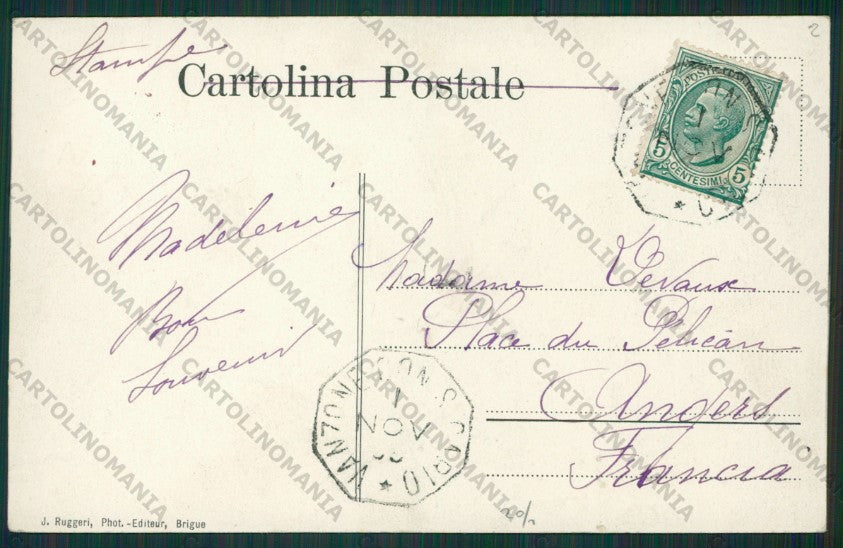 Stampe
Cartolina Postale
POSTE
5 5
CENTESIMI
Madeleine
Bon
Souvenir
Madame Devaux
Place du Pélican
Angers
Francia
VANZONE CON S. CARLO
1
NOV
J. Ruggeri, Phot.-Editeur, Brigue
2
CARTOLINOMANIA